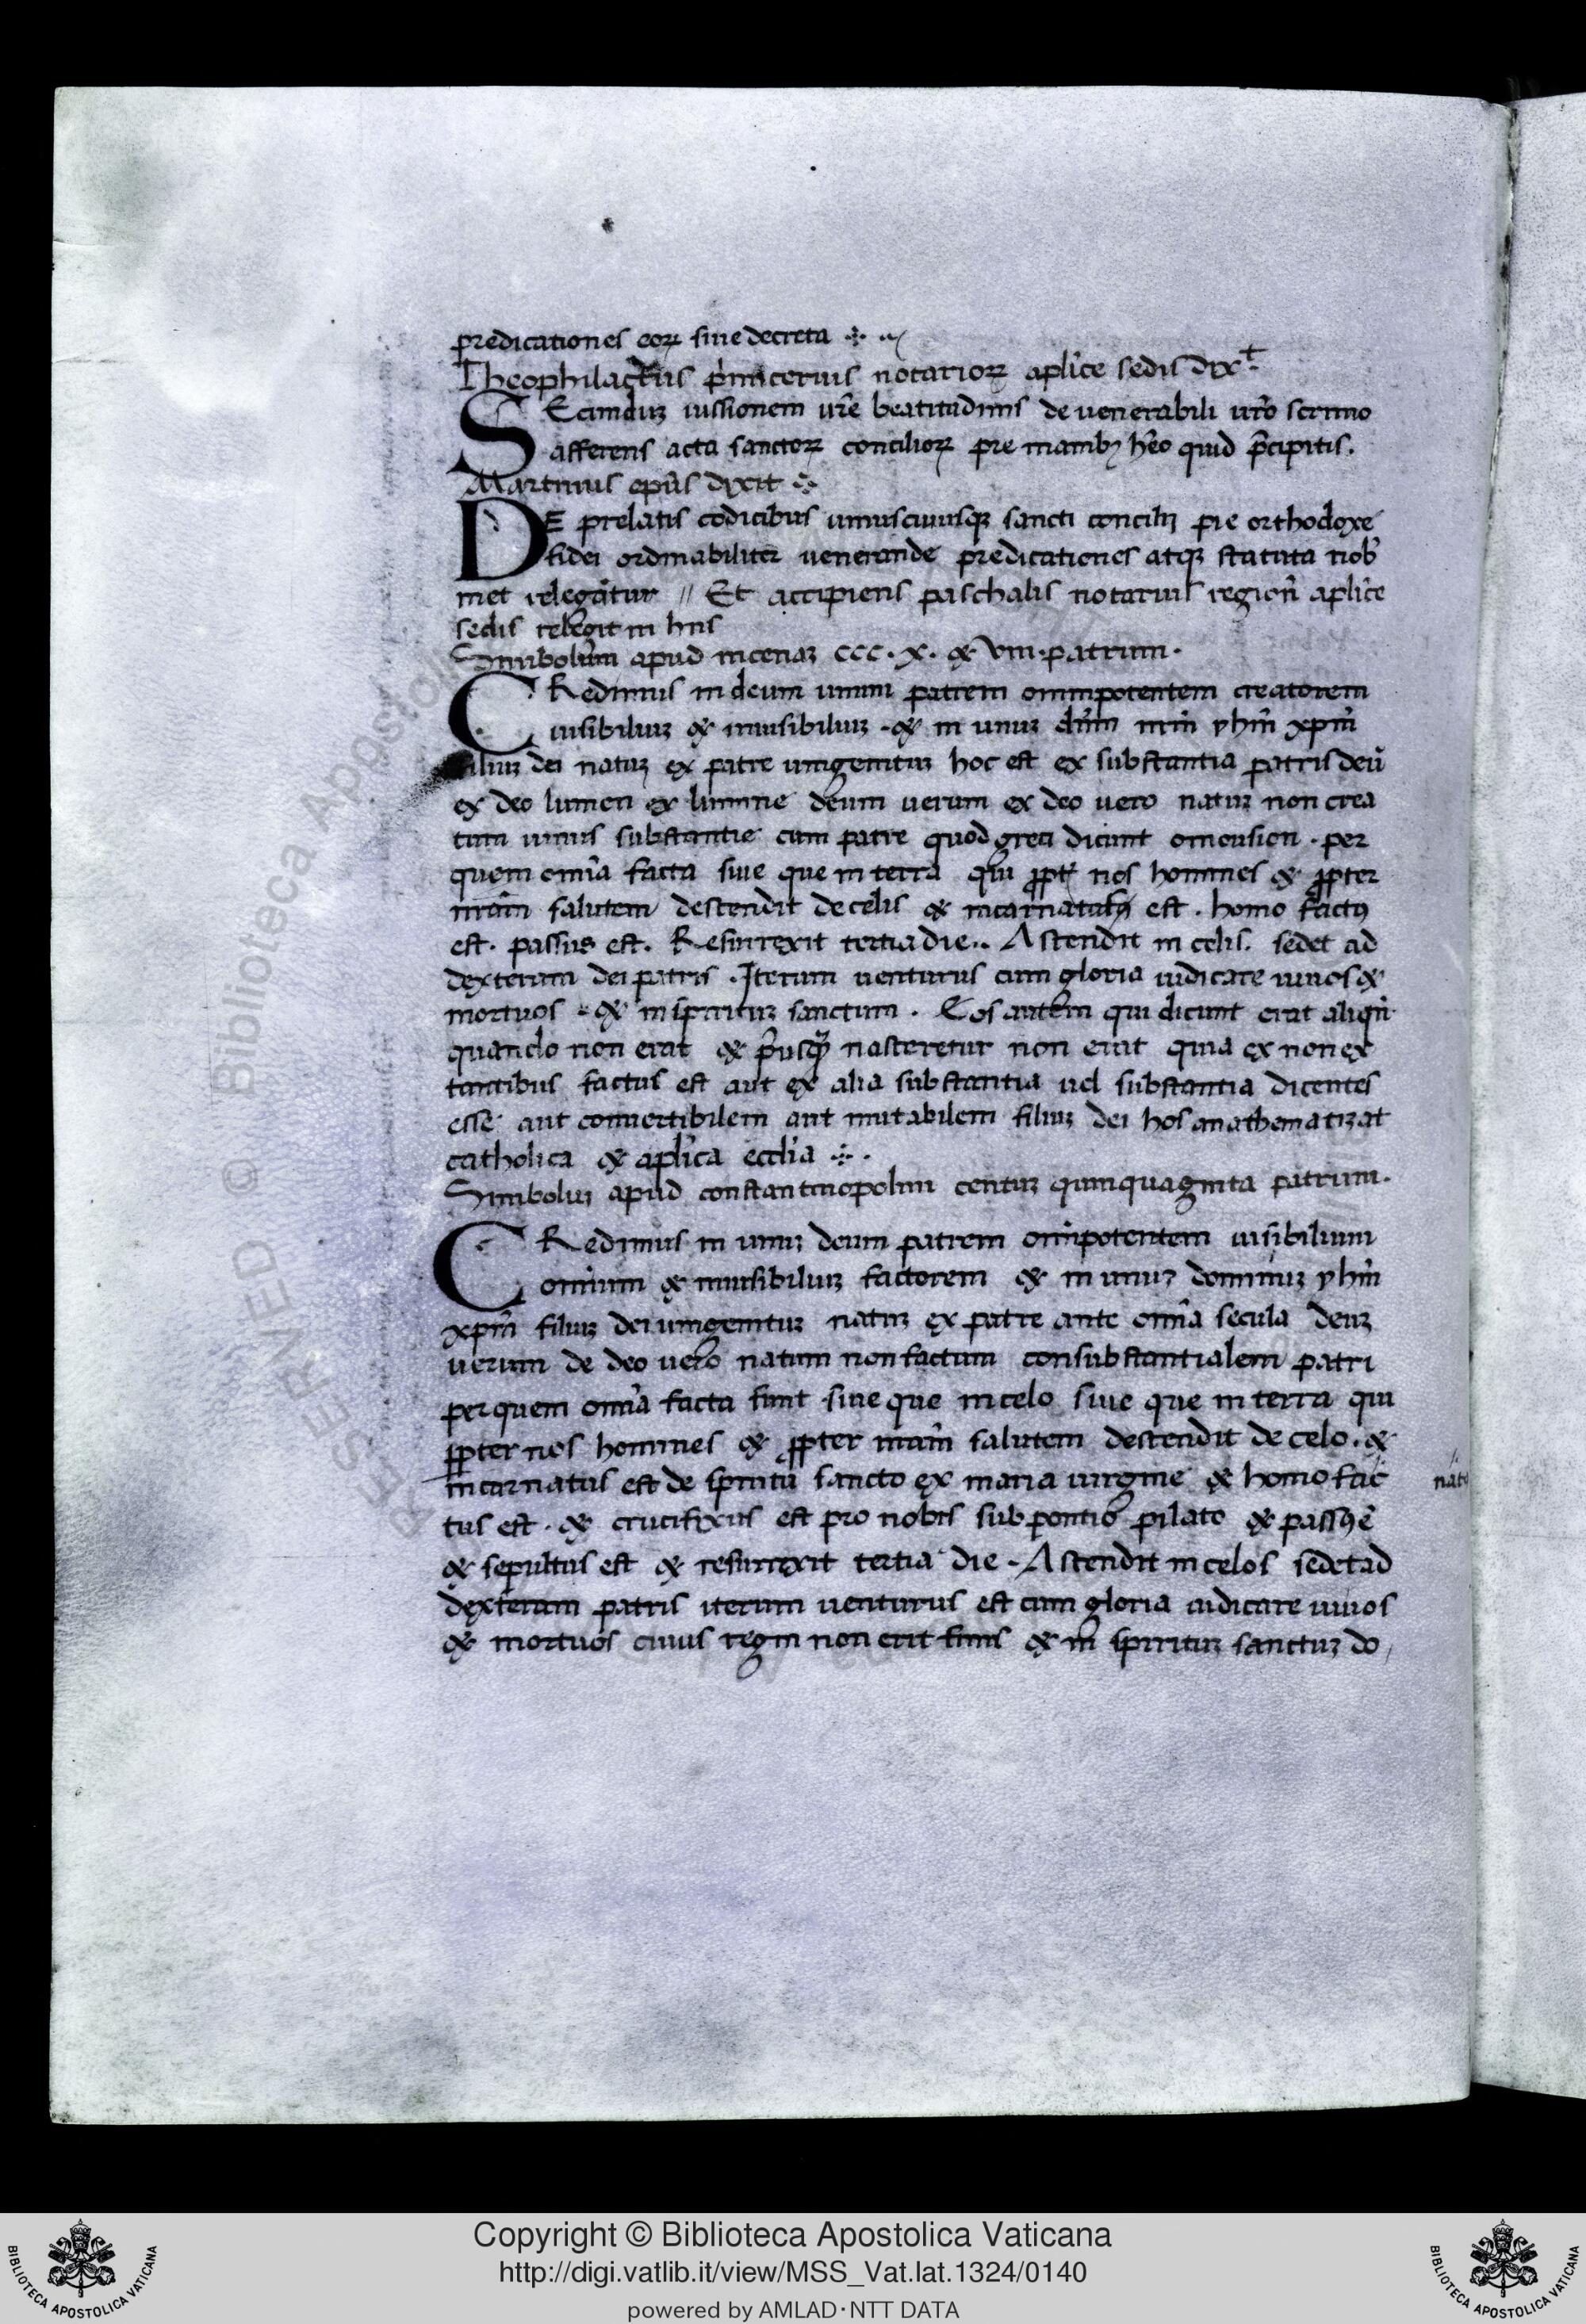 predicationes eoꝝ siue decreta ⁘
Theophilactus p̄imicerius notarioꝝ aplice sedis dix̅t
SEcunduꝫ iussionem ur̄e beatitudinis de uenerabili ur̄o scrinio
afferens acta sanctoꝝ concilioꝝ pre manibꝫ h̄eo quid p̄cipitis.
Martinus ep̄us dixit ⁘
DE prelatis codicibus uniuscuiusqꝫ sancti concilij pie orthodoxe
fidei ordinabiliter uenerande predicationes atqꝫ statuta nob̄
met relegātur // Et accipiens paschalis notarius region̄ aplice
sedis relegit in hiis
Simbolum apud niceнaꝫ ccc. x. & viii. patrum.
CRedimus in deum unum patrem omnipotentem creatorem
uisibiliuꝫ & inuisibiliuꝫ . & in unuꝫ dn̄m nr̄m yhm̄ xpm̄
filiuꝫ dei natuꝫ ex patre unigenituꝫ hoc est ex substantia patris deū
ex deo lumen ex lumine deum uerum ex deo uero natuꝫ non crea
tum unius substantie cum patre quod greci dicunt omousion . per
quem om̄ia facta siue que in terra qui ꝓpt̄ nos homines & ꝓpter
nr̄am salutem descendit de celis & incarnatus est . homo factꝰ
est . passus est . Resurrexit tertia die .. Ascendit in celis . sedet ad
dexteram dei patris . Iterum uenturus cum gloria iudicare uiuos &
mortuos . & in spirituꝫ sanctum . Eos autem qui dicunt erat aliqn̄
quando non erat & p̄usqꝫ nasceretur non erat quia ex non ex
tantibus factus est aut ex alia substantia uel substantia dicentes
esse aut conuertibilem aut mutabilem filiuꝫ dei hos anathematizat
catholica & aplica ecclia ⁘ .
Simboluꝫ apud constantinopolim centuꝫ quinquaginta patrum .
CRedimus in unuꝫ deum patrem om̄ipotentem uisibilium
omnium & inuisibiliuꝫ factorem & in unuꝫ dominuꝫ yhm̄
xpm̄ filiuꝫ dei unigenituꝫ natuꝫ ex patre ante om̄ia secula deuꝫ
uerum de deo uero natum non factum consubstantialem patri
per quem om̄ia facta sunt siue que in celo siue que in terra qui
ꝓpter nos homines & ꝓpter nr̄am salutem descendit de celo . &
incarnatus est de spiritu sancto ex maria uirgine & homo fac
natꝰ
tus est . & crucifixus est pro nobis sub pontio pilato & passꝰ ē
& sepultus est & resurrexit tertia die . Ascendit in celos sedet ad
dexteram patris iterum uenturus est cum gloria iudicare uiuos
& mortuos cuius regni non erit finis & in spirituꝫ sanctuꝫ do
Copyright © Biblioteca Apostolica Vaticana
http://digi.vatlib.it/view/MSS_Vat.lat.1324/0140
powered by AMLAD·NTT DATA
BIBLIOTECA APOSTOLICA VATICANA
BIBLIOTECA APOSTOLICA VATICANA